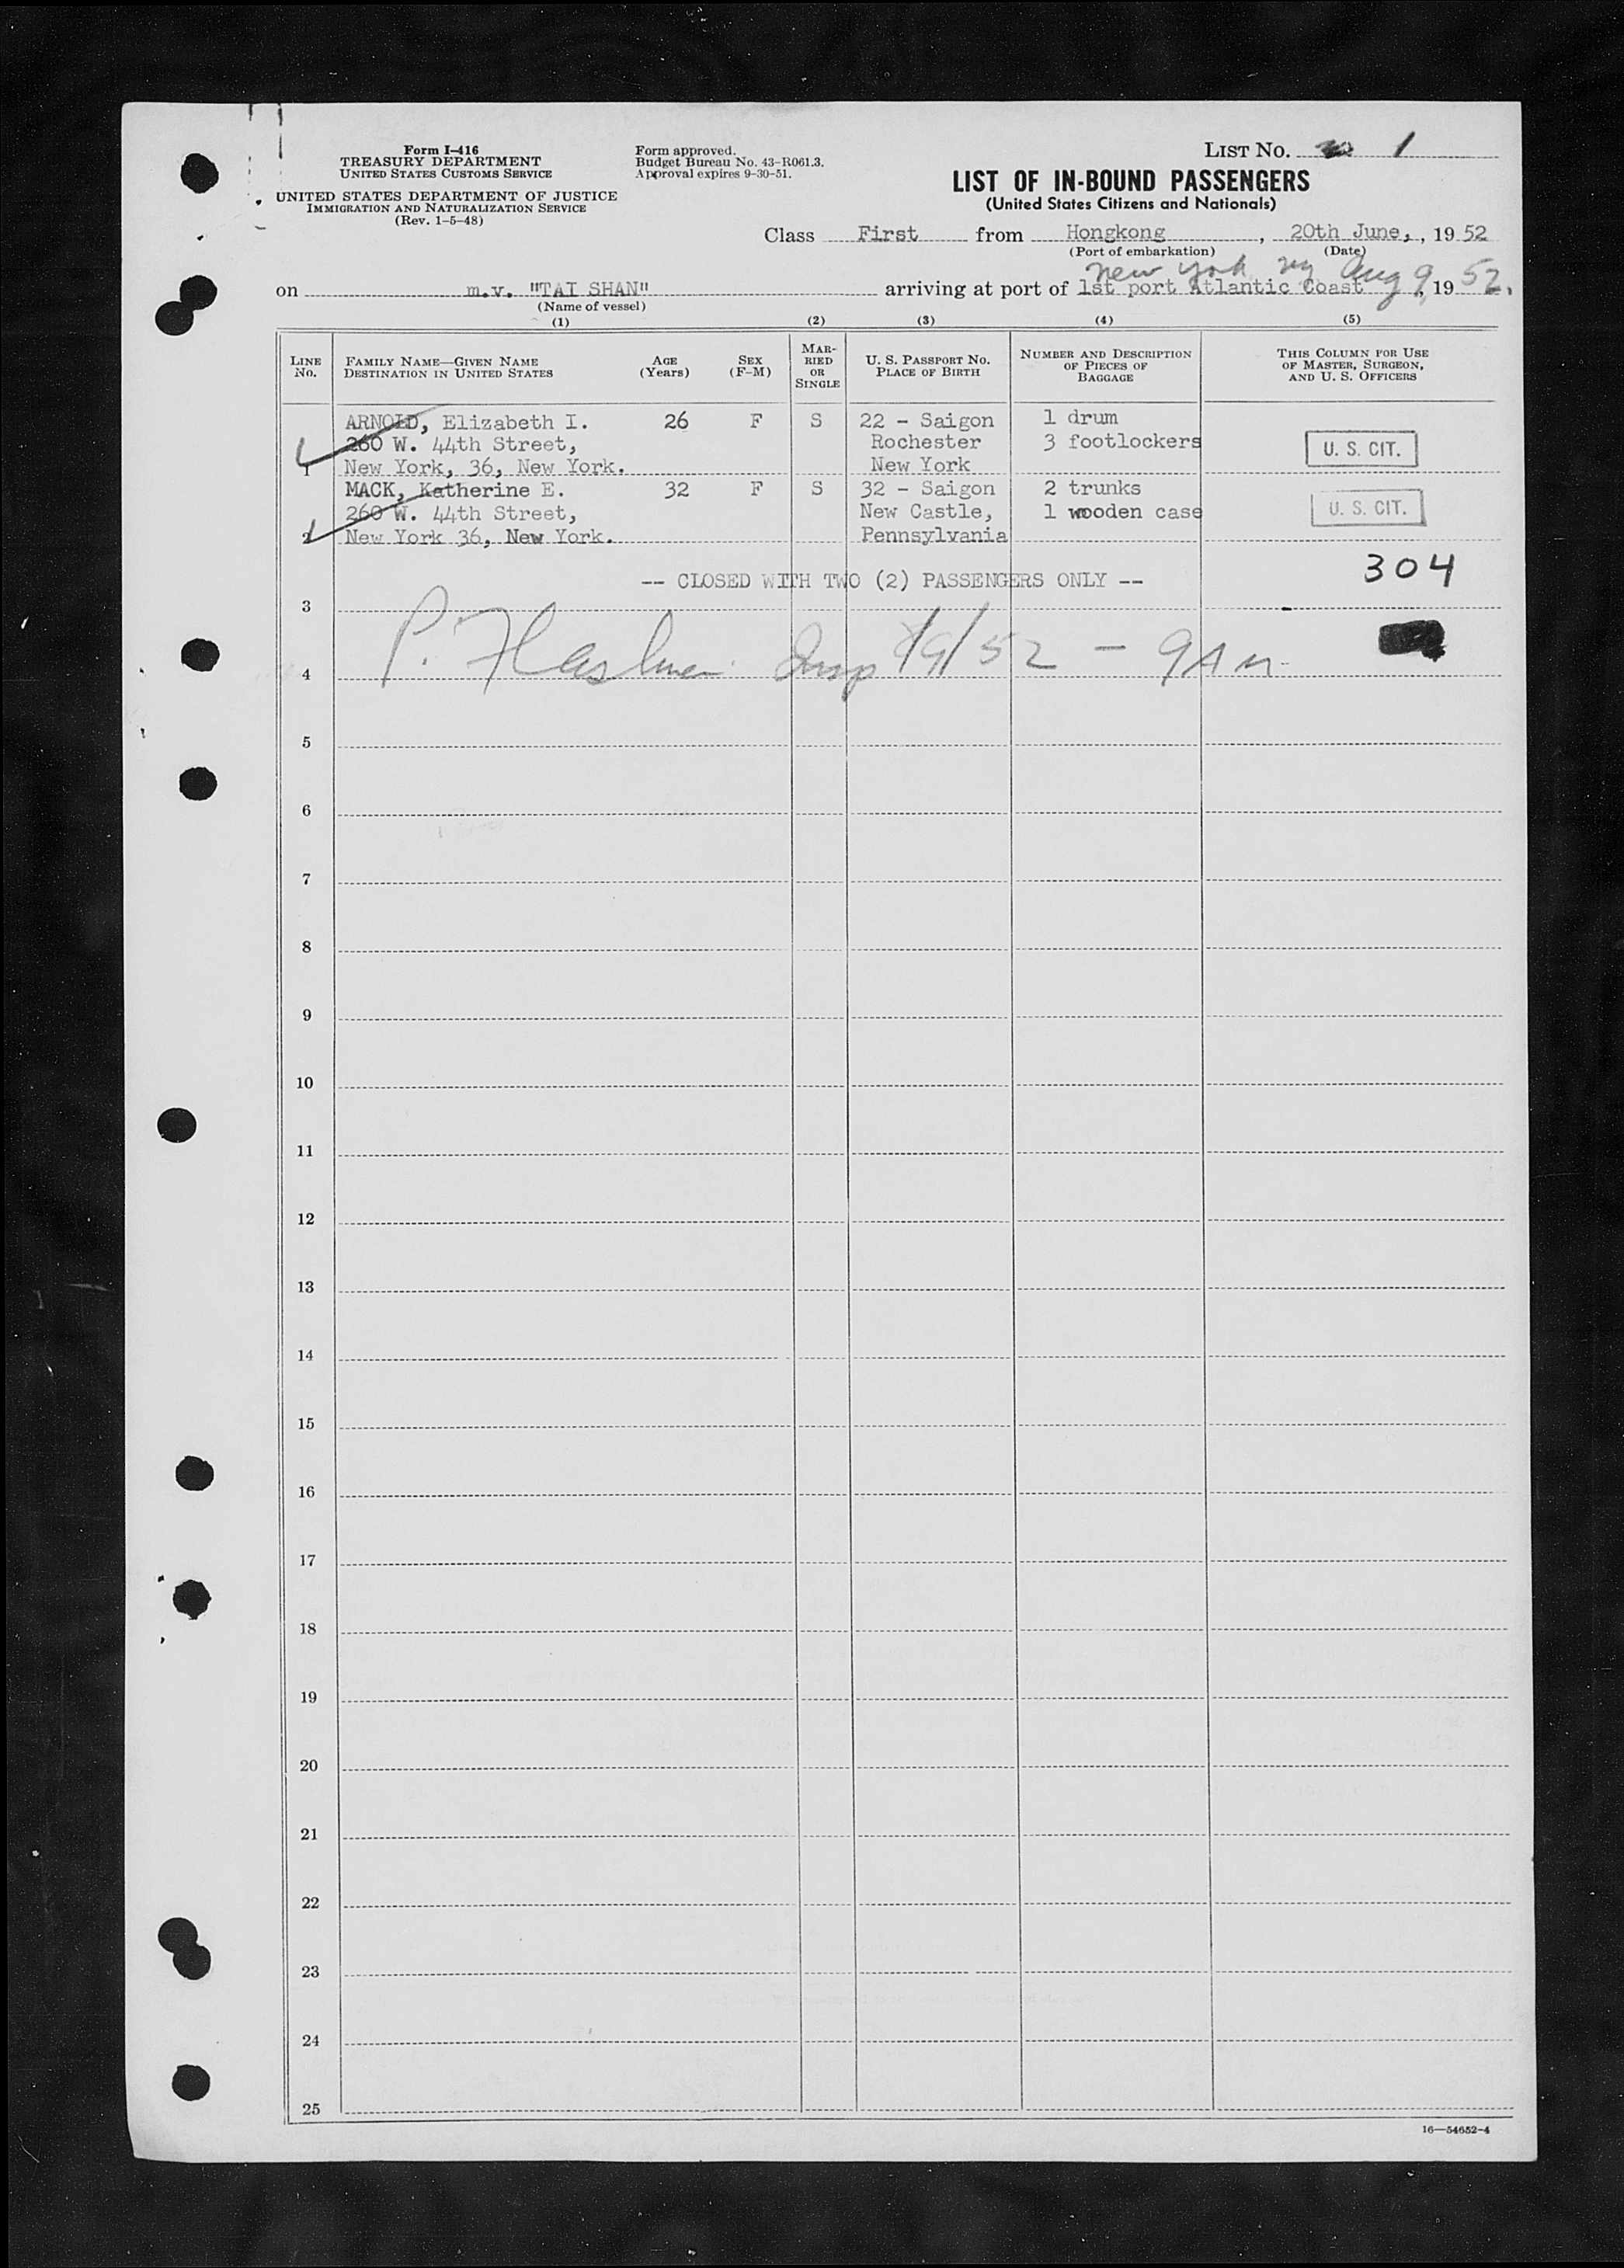 Form I-416
TREASURY DEPARTMENT
UNITED STATES CUSTOMS SERVICE
UNITED STATES DEPARTMENT OF JUSTICE
IMMIGRATION AND NATURALIZATION SERVICE
(Rev. 1-5-48)
Form approved.
Budget Bureau No. 43-R061.3.
Approval expires 9-30-51.
LIST NO. 1
LIST OF IN-BOUND PASSENGERS
(United States Citizens and Nationals)
Class First from Hongkong, 20th June, , 19 52
(Port of embarkation) (Date)
New York NY Aug 9
on m.v. "TAI SHAN" arriving at port of 1st port Atlantic Coast, 19 52.
(Name of vessel)
(1) (2) (3) (4) (5)
LINE No. FAMILY NAME—GIVEN NAME DESTINATION IN UNITED STATES AGE (Years) SEX (F-M) MARRIED OR SINGLE U. S. PASSPORT NO. PLACE OF BIRTH NUMBER AND DESCRIPTION OF PIECES OF BAGGAGE THIS COLUMN FOR USE OF MASTER, SURGEON, AND U. S. OFFICERS
ARNOLD, Elizabeth I. 26 F S 22 - Saigon 1 drum
260 W. 44th Street, Rochester 3 footlockers U. S. CIT.
1 New York, 36, New York. New York
MACK, Katherine E. 32 F S 32 - Saigon 2 trunks
260 W. 44th Street, New Castle, 1 wooden case U. S. CIT.
2 New York 36, New York. Pennsylvania
304
-- CLOSED WITH TWO (2) PASSENGERS ONLY --
3
P. Insp 8/9/52 - 9 AM
4
5
6
7
8
9
10
11
12
13
14
15
16
17
18
19
20
21
22
23
24
25
16—54652-4